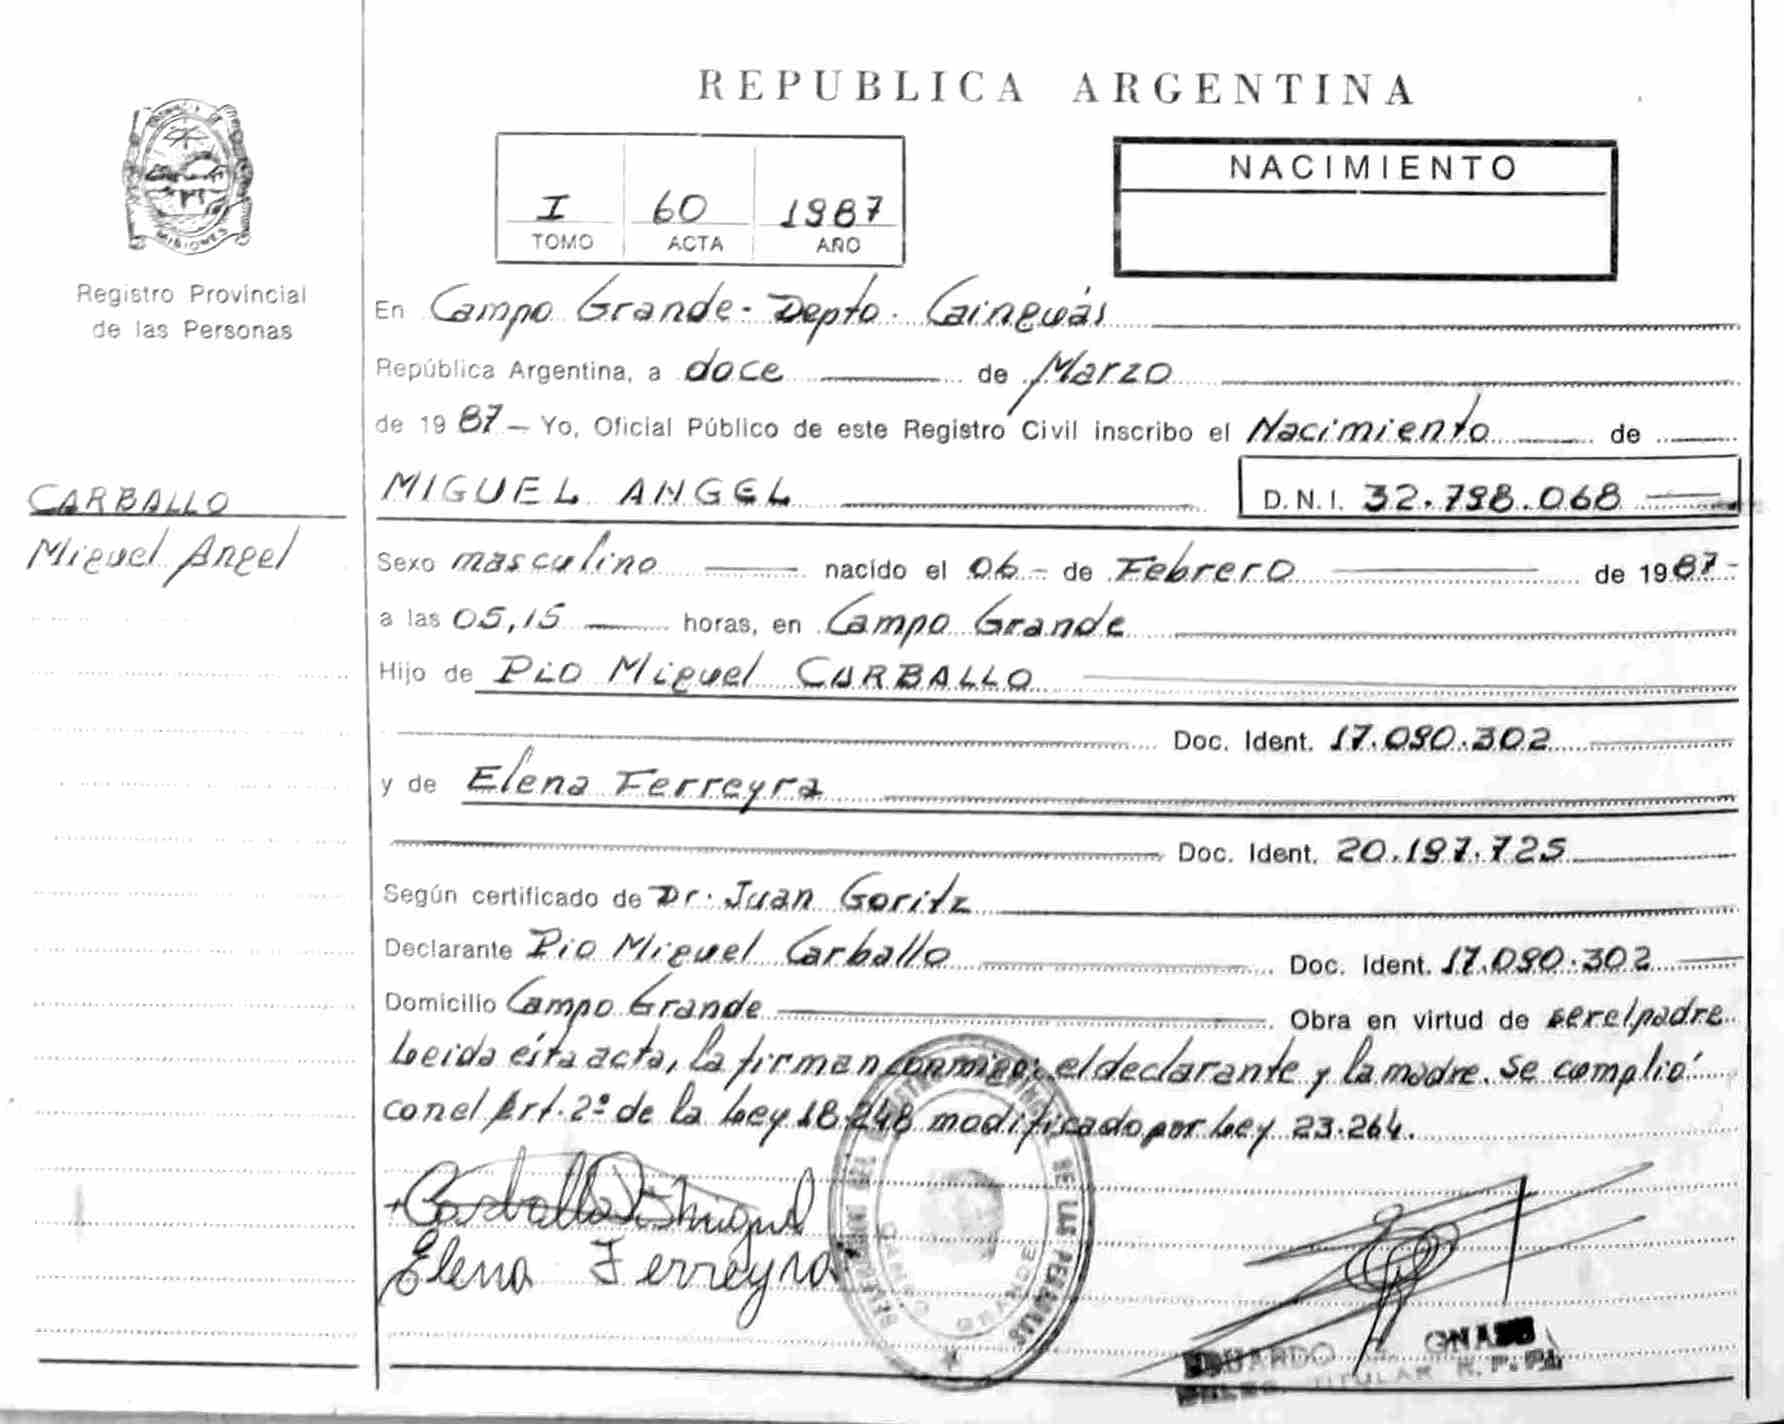 REPUBLICA ARGENTINA
MISIONES
Registro Provincial
de las Personas
I 60 1987
TOMO ACTA AÑO
NACIMIENTO
En Campo Grande - Depto. Cainguás
República Argentina, a doce de Marzo
de 1987 - Yo, Oficial Público de este Registro Civil inscribo el Nacimiento de
CARBALLO
Miguel Angel
MIGUEL ANGEL D.N.I. 32.798.068
Sexo masculino nacido el 06 - de Febrero de 1987 -
a las 05,15 horas, en Campo Grande
Hijo de Pio Miguel CARBALLO
Doc. Ident. 17.090.302
y de Elena Ferreyra
Doc. Ident. 20.197.725
Según certificado de Dr. Juan Goritz
Declarante Pio Miguel Carballo Doc. Ident. 17.090.302
Domicilio Campo Grande Obra en virtud de ser el padre
Leida ésta acta, la firman conmigo; el declarante y la madre. Se cumplió
con el Art. 2º de la Ley 18.248 modificado por Ley 23.264.
Carballo Pio Miguel
Elena Ferreyra
DE LAS PERSONAS
CAMPO GRANDE
EDUARDO
TITULAR R.P.P.